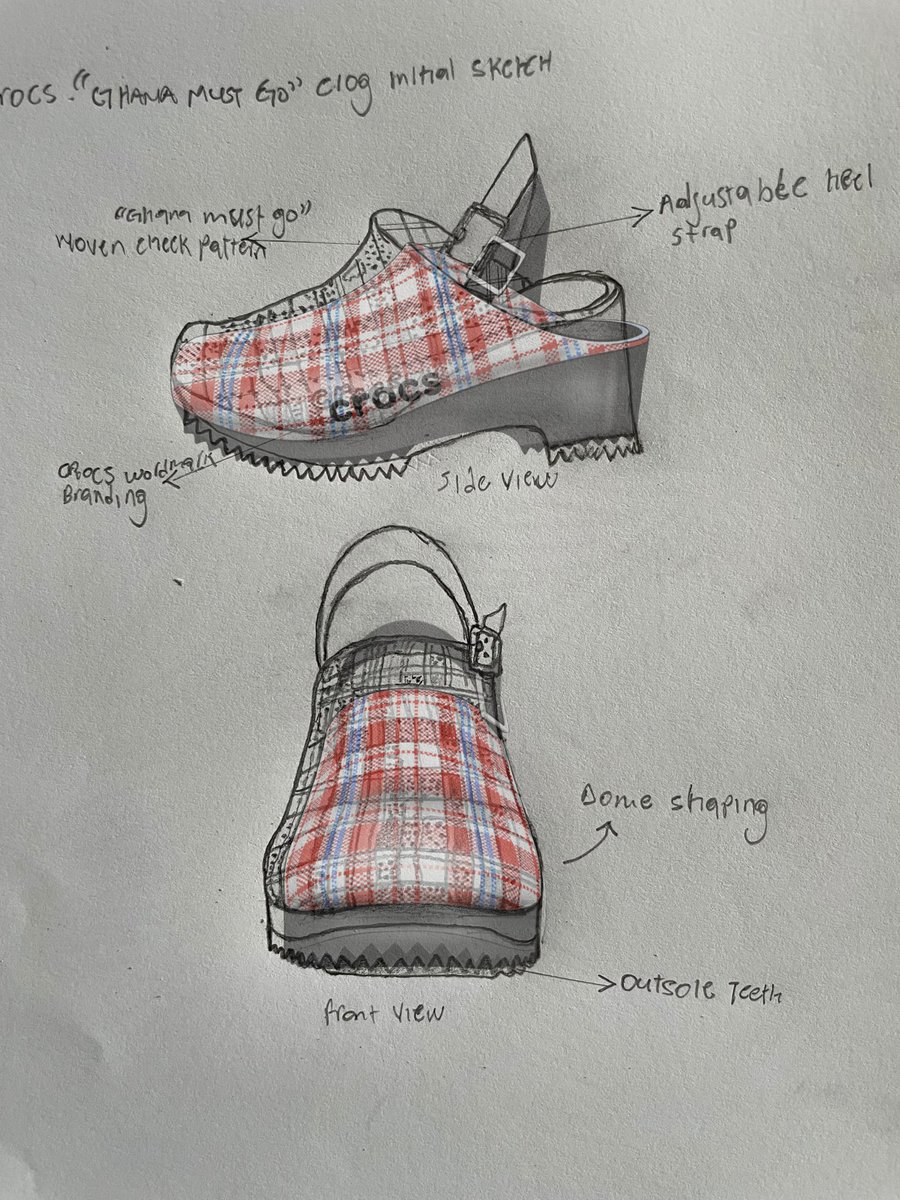 rocs. "GHANA MUST GO" clog initial sketch
"Ghana must go"
woven check pattern
Adjustable heel
strap
crocs
crocs wordmark
Branding
side view
Dome shaping
outsole Teeth
front view